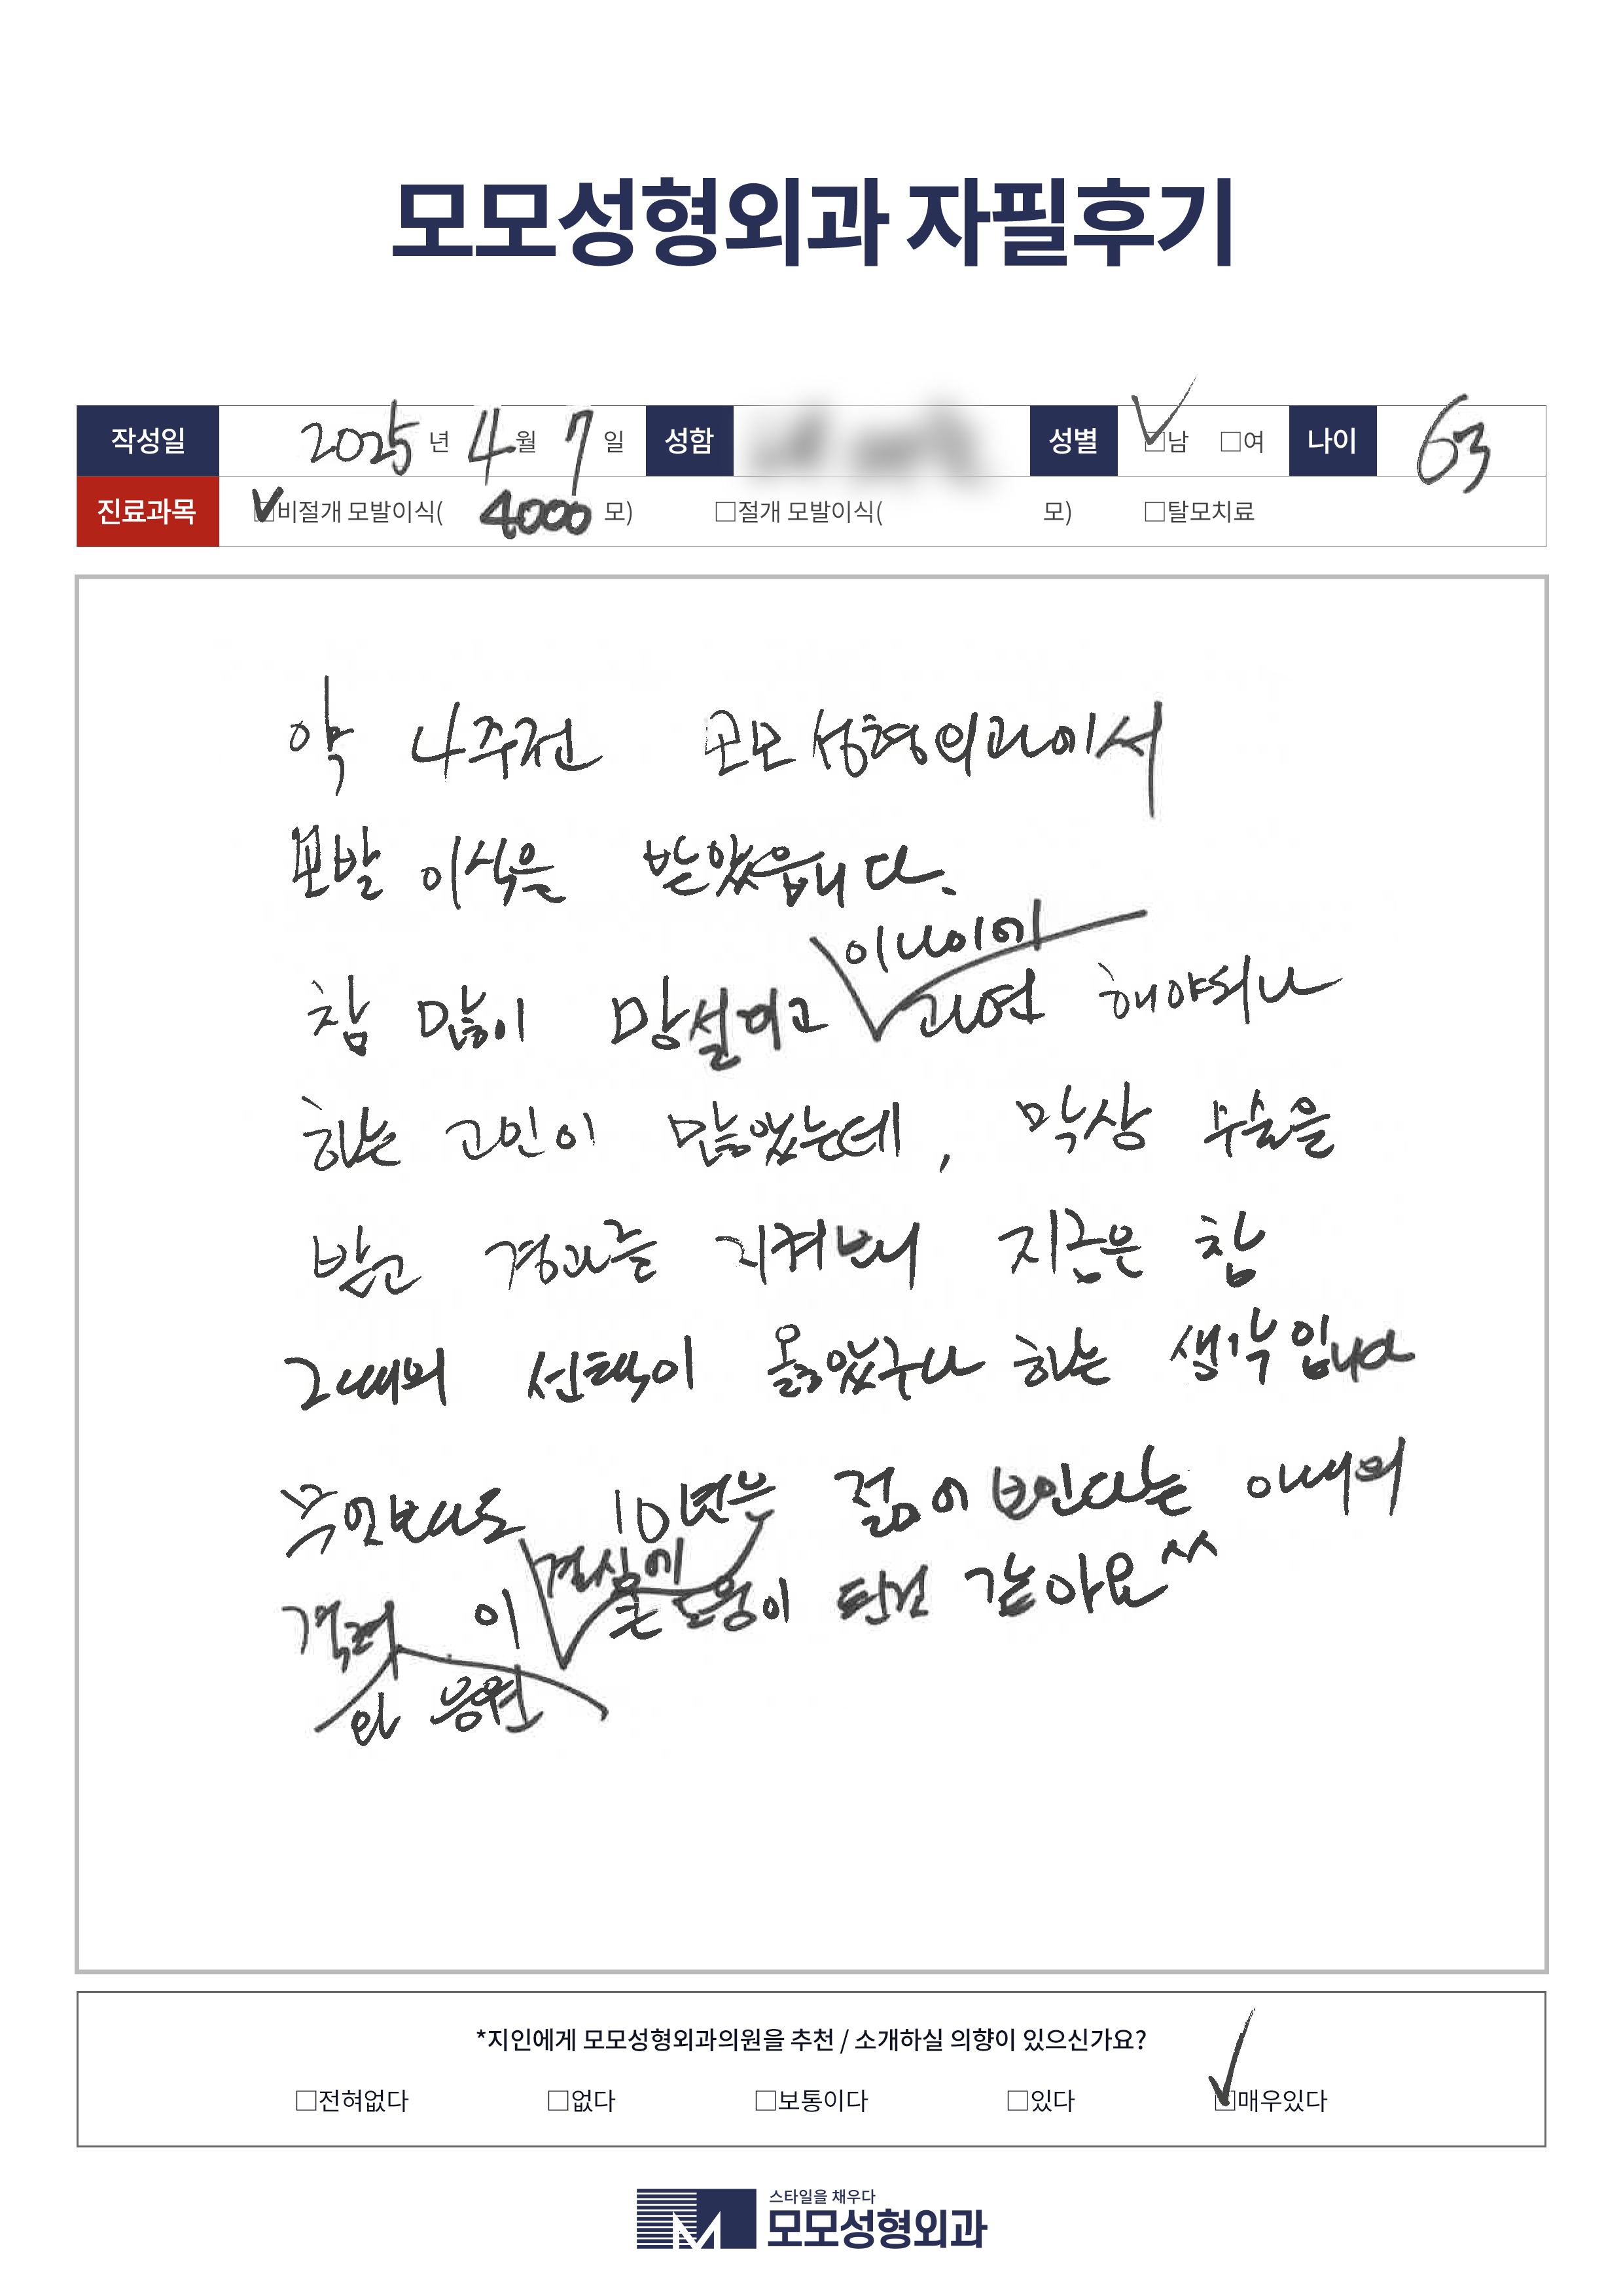 모모성형외과 자필후기
작성일 2025 년 4 월 7 일 성함 성별 ☑남 □여 나이 63
진료과목 ☑비절개 모발이식( 4000 모) □절개 모발이식( 모) □탈모치료
약 4주전 모모성형외과에서
모발 이식을 받았읍니다.
이나이에
참 많이 망설이고 과연 해야되나
하는 고민이 많았는데, 막상 수술을
받고 경과를 지켜보니 지금은 참
그때의 선택이 옳았구나 하는 생각입니다
무엇보다도 10년은 젊어 보인다는 아내의
결심에
격려 이 큰 도움이 된것 같아요^^
와 응원
*지인에게 모모성형외과의원을 추천 / 소개하실 의향이 있으신가요?
□전혀없다 □없다 □보통이다 □있다 ☑매우있다
스타일을 채우다
모모성형외과